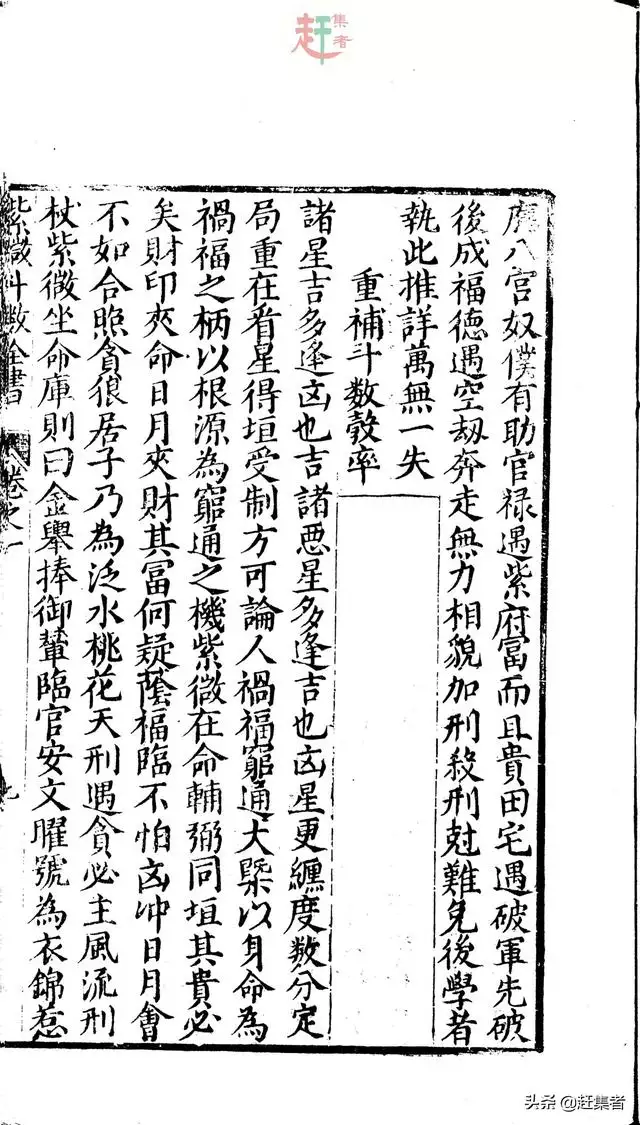 赶集者
八宫奴僕有助官禄遇紫府富而且貴田宅遇破軍先破
後成福德遇空劫奔走無力相貌加刑殺刑尅難免後學者
執此推詳萬無一失
重補斗数彀率
諸星吉多逢凶也吉諸惡星多逢吉也凶星更纏度数分定
局重在看星得垣受制方可論人禍福窮通大槩以身命為
禍福之柄以根源為窮通之機紫微在命輔弼同垣其貴必
矣財印夾命日月夾財其富何疑蔭福臨不怕凶冲日月會
不如合照貪狼居子乃為泛水桃花天刑遇貪必主風流刑
杖紫微坐命庫則曰金轝捧御輦臨官安文曜號為衣錦惹
紫微斗数全書 卷之一 九
头条 @赶集者